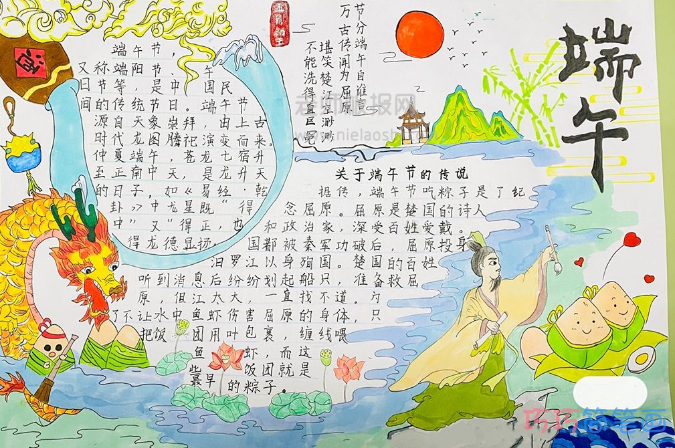 端午
端午节，
又称端阳节、午
日节等，是中国民
间的传统节日。端午节
源自天象崇拜，由上古
时代龙图腾祀演变而来。
仲夏端午，苍龙七宿升
至正南中天，是龙升天
的日子，如《易经·乾
卦》中龙星既“得
中”又“得正，也
得龙德显扬
节分端午自谁言
万古传闻为屈原
堪笑楚江空渺渺
不能洗得直臣
关于端午节的传说
据传，端午节吃粽子是了纪
念屈原。屈原是楚国的诗人
和政治家，深受百姓爱戴。
国都被秦军功破后，屈原投身
汨罗江以身殉国。楚国的百姓
听到消息后纷纷划起船只，准备救屈
原，但江太大，一直找不道。为
了不让水中鱼虾伤害屈原的身体，只
把饭团用叶包裹，缠线喂
鱼虾，而这
些饭团就是
最早的粽子。
酒